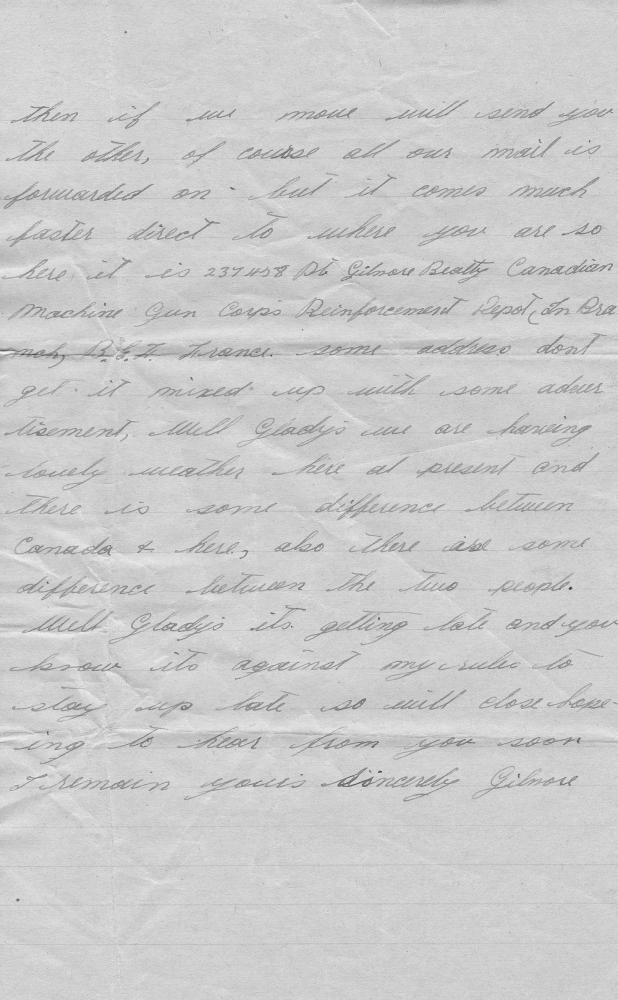 then if we move will send you
the other, of course all our mail is
forwarded on - but it comes much
faster direct to where you are so
here it is 237458 Pte Gilmore Beatty Canadian
Machine Gun Corps Reinforcement Depot, (In Bra
nch) B.E.F. France. some address dont
get it mixed up with some adver
tisement, Well Gladys we are having
lovely weather here at present and
there is some difference between
Canada & here, also there is some
difference between the two people.
Well Gladys its getting late and you
know its against my rules to
stay up late so will close hope-
ing to hear from you soon
I remain yours Sincerely Gilmore